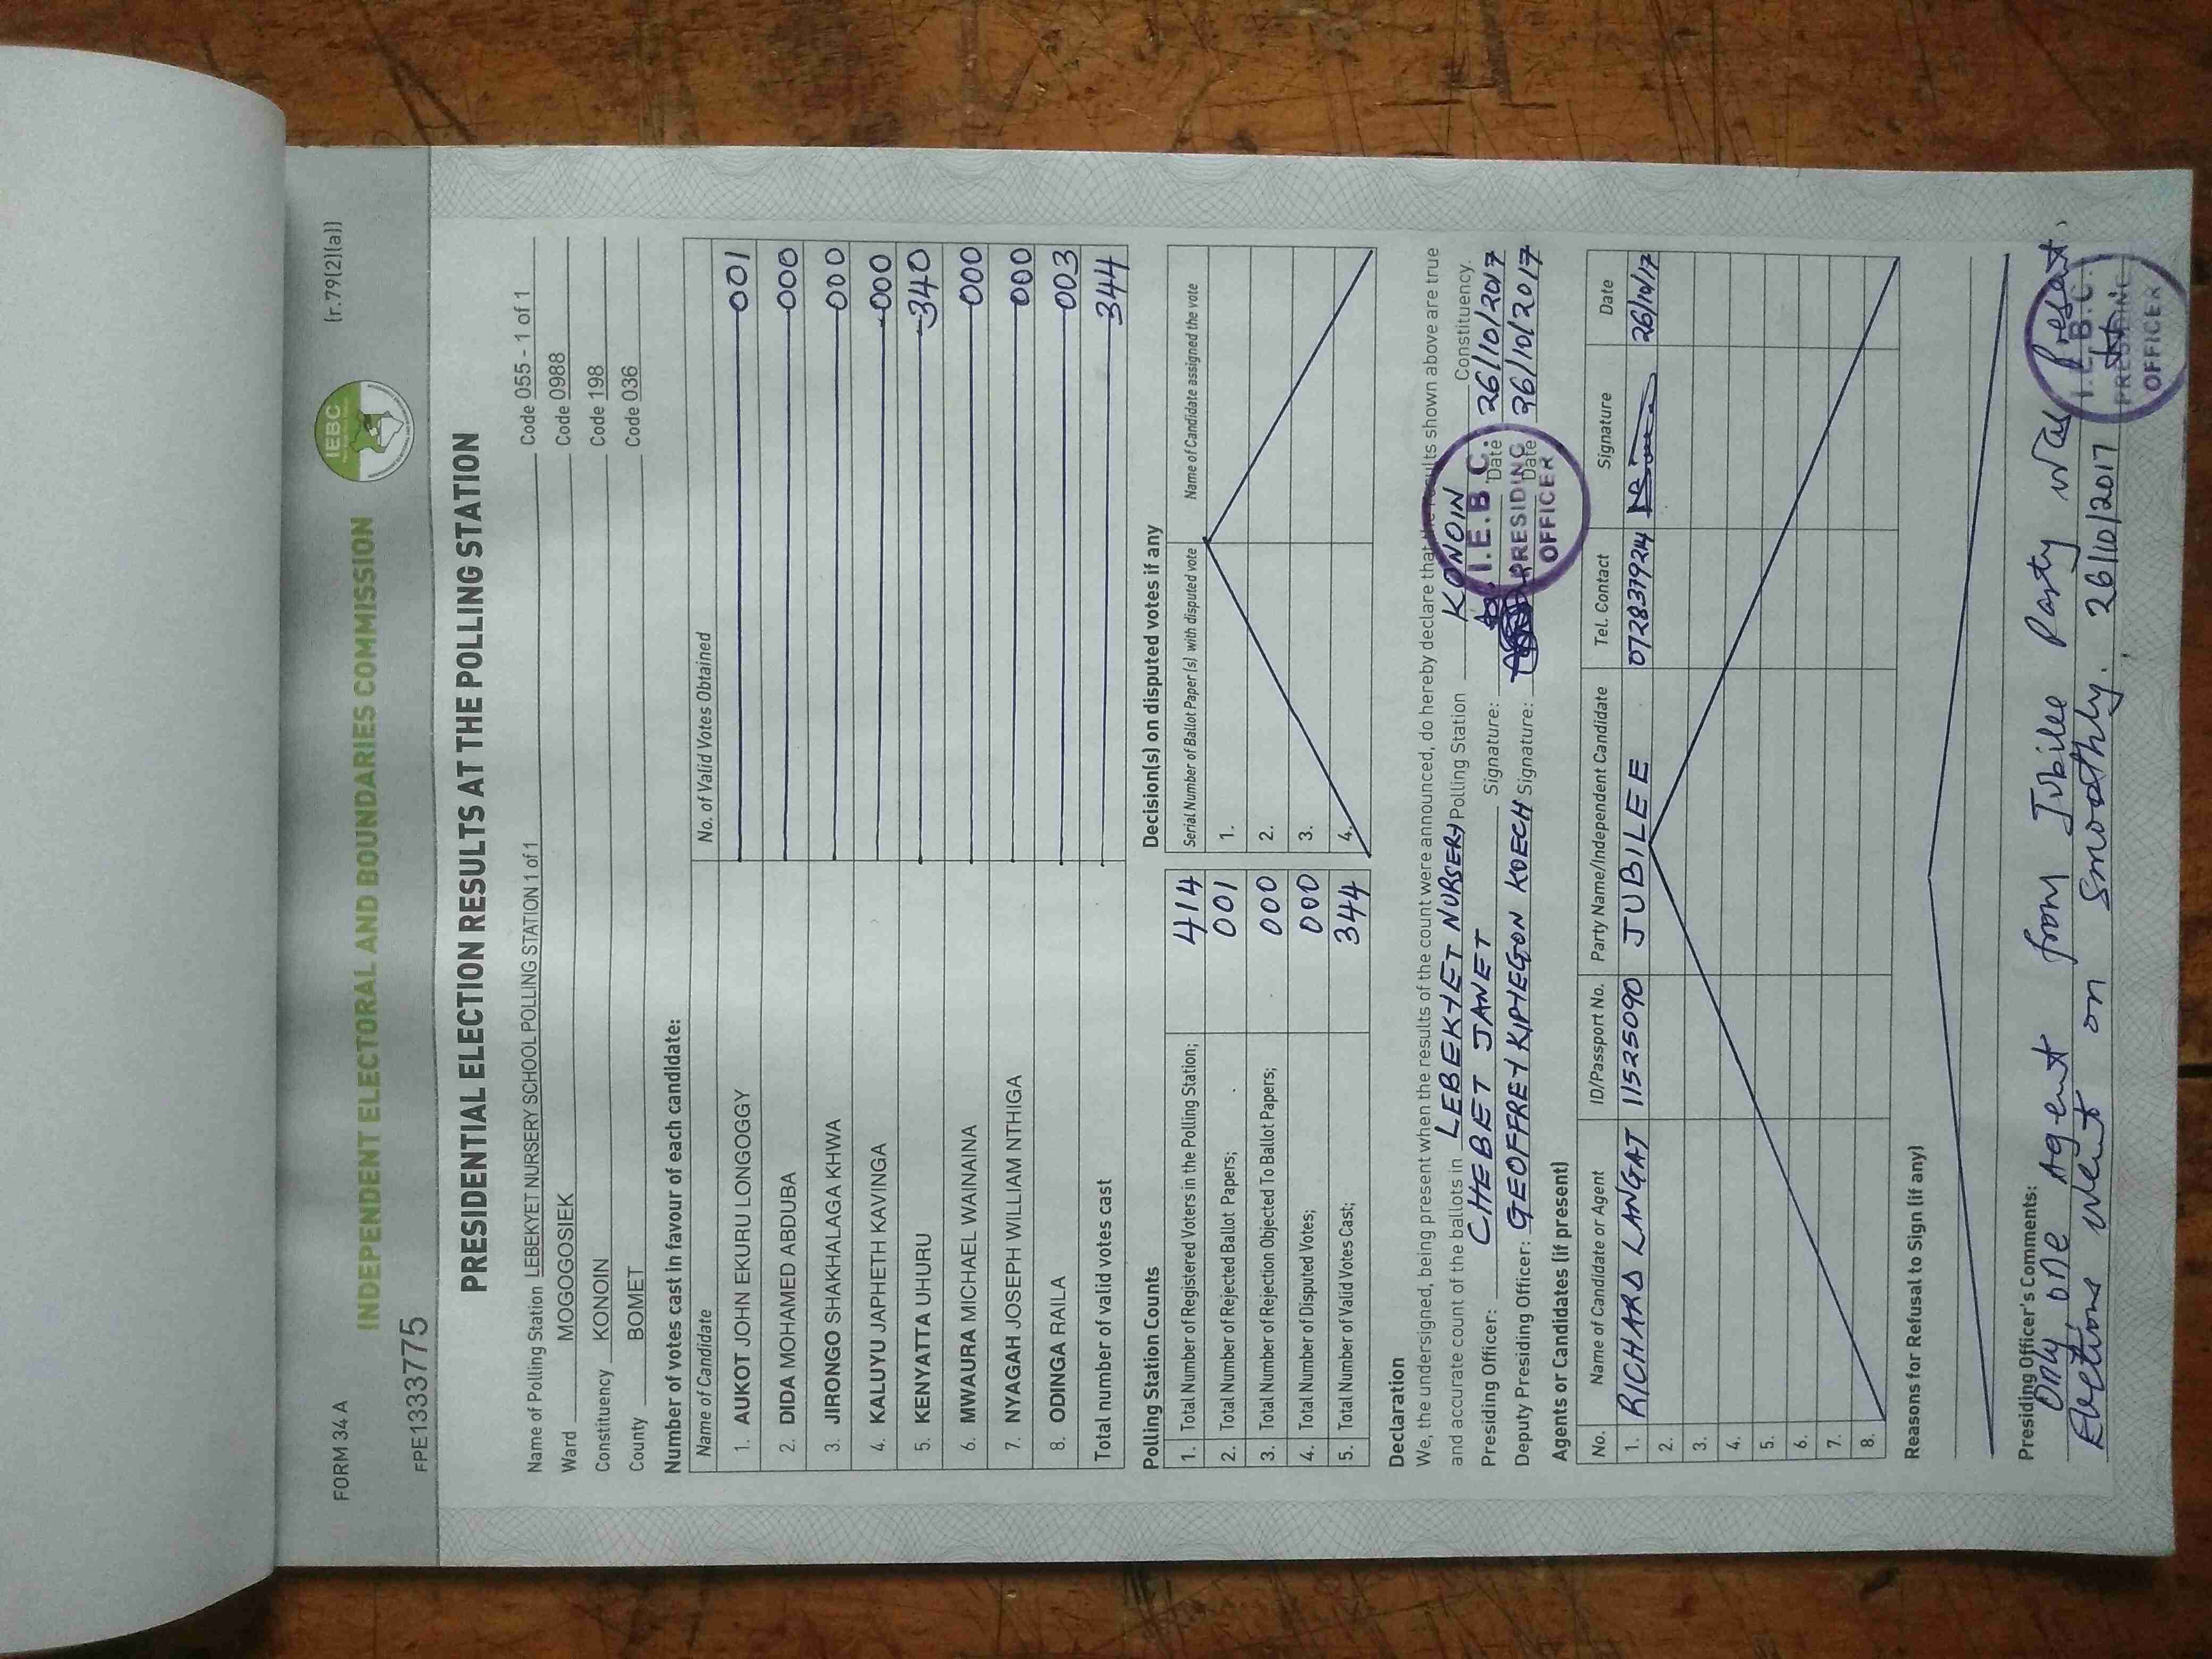 FORM 34 A
(r.79(2)(a))
IEBC
INDEPENDENT ELECTORAL AND BOUNDARIES COMMISSION
FPE1333775
PRESIDENTIAL ELECTION RESULTS AT THE POLLING STATION
Name of Polling Station LEBEKYET NURSERY SCHOOL POLLING STATION 1 of 1 Code 055 - 1 of 1
Ward MOGOGOSIEK Code 0988
Constituency KONOIN Code 198
County BOMET Code 036
Number of votes cast in favour of each candidate:
Name of Candidate No. of Valid Votes Obtained
1. AUKOT JOHN EKURU LONGOGGY 001
2. DIDA MOHAMED ABDUBA 000
3. JIRONGO SHAKHALAGA KHWA 000
4. KALUYU JAPHETH KAVINGA 000
5. KENYATTA UHURU 340
6. MWAURA MICHAEL WAINAINA 000
7. NYAGAH JOSEPH WILLIAM NTHIGA 000
8. ODINGA RAILA 003
Total number of valid votes cast 344
Polling Station Counts
1. Total Number of Registered Voters in the Polling Station; 414
2. Total Number of Rejected Ballot Papers; 001
3. Total Number of Rejection Objected To Ballot Papers; 000
4. Total Number of Disputed Votes; 000
5. Total Number of Valid Votes Cast; 344
Decision(s) on disputed votes if any
Serial Number of Ballot Paper (s) with disputed vote Name of Candidate assigned the vote
1.
2.
3.
4.
Declaration
We, the undersigned, being present when the results of the count were announced, do hereby declare that the results shown above are true
and accurate count of the ballots in LEBEKYET NURSERY Polling Station KONOIN Constituency.
Presiding Officer: CHEBET JANET Signature: Date 26/10/2017
Deputy Presiding Officer: GEOFFREY KIPHEGON KOECH Signature: Date 26/10/2017
I.E.B.C.
PRESIDING
OFFICER
Agents or Candidates (if present)
No. Name of Candidate or Agent ID/Passport No. Party Name/Independent Candidate Tel. Contact Signature Date
1. RICHARD LANGAT 11525090 JUBILEE 0728379214 26/10/17
2.
3.
4.
5.
6.
7.
8.
Reasons for Refusal to Sign (if any)
Presiding Officer's Comments:
Only one Agent from Jubilee Party was Present.
Elections went on smoothly. 26/10/2017
I.E.B.C.
PRESIDING
OFFICER